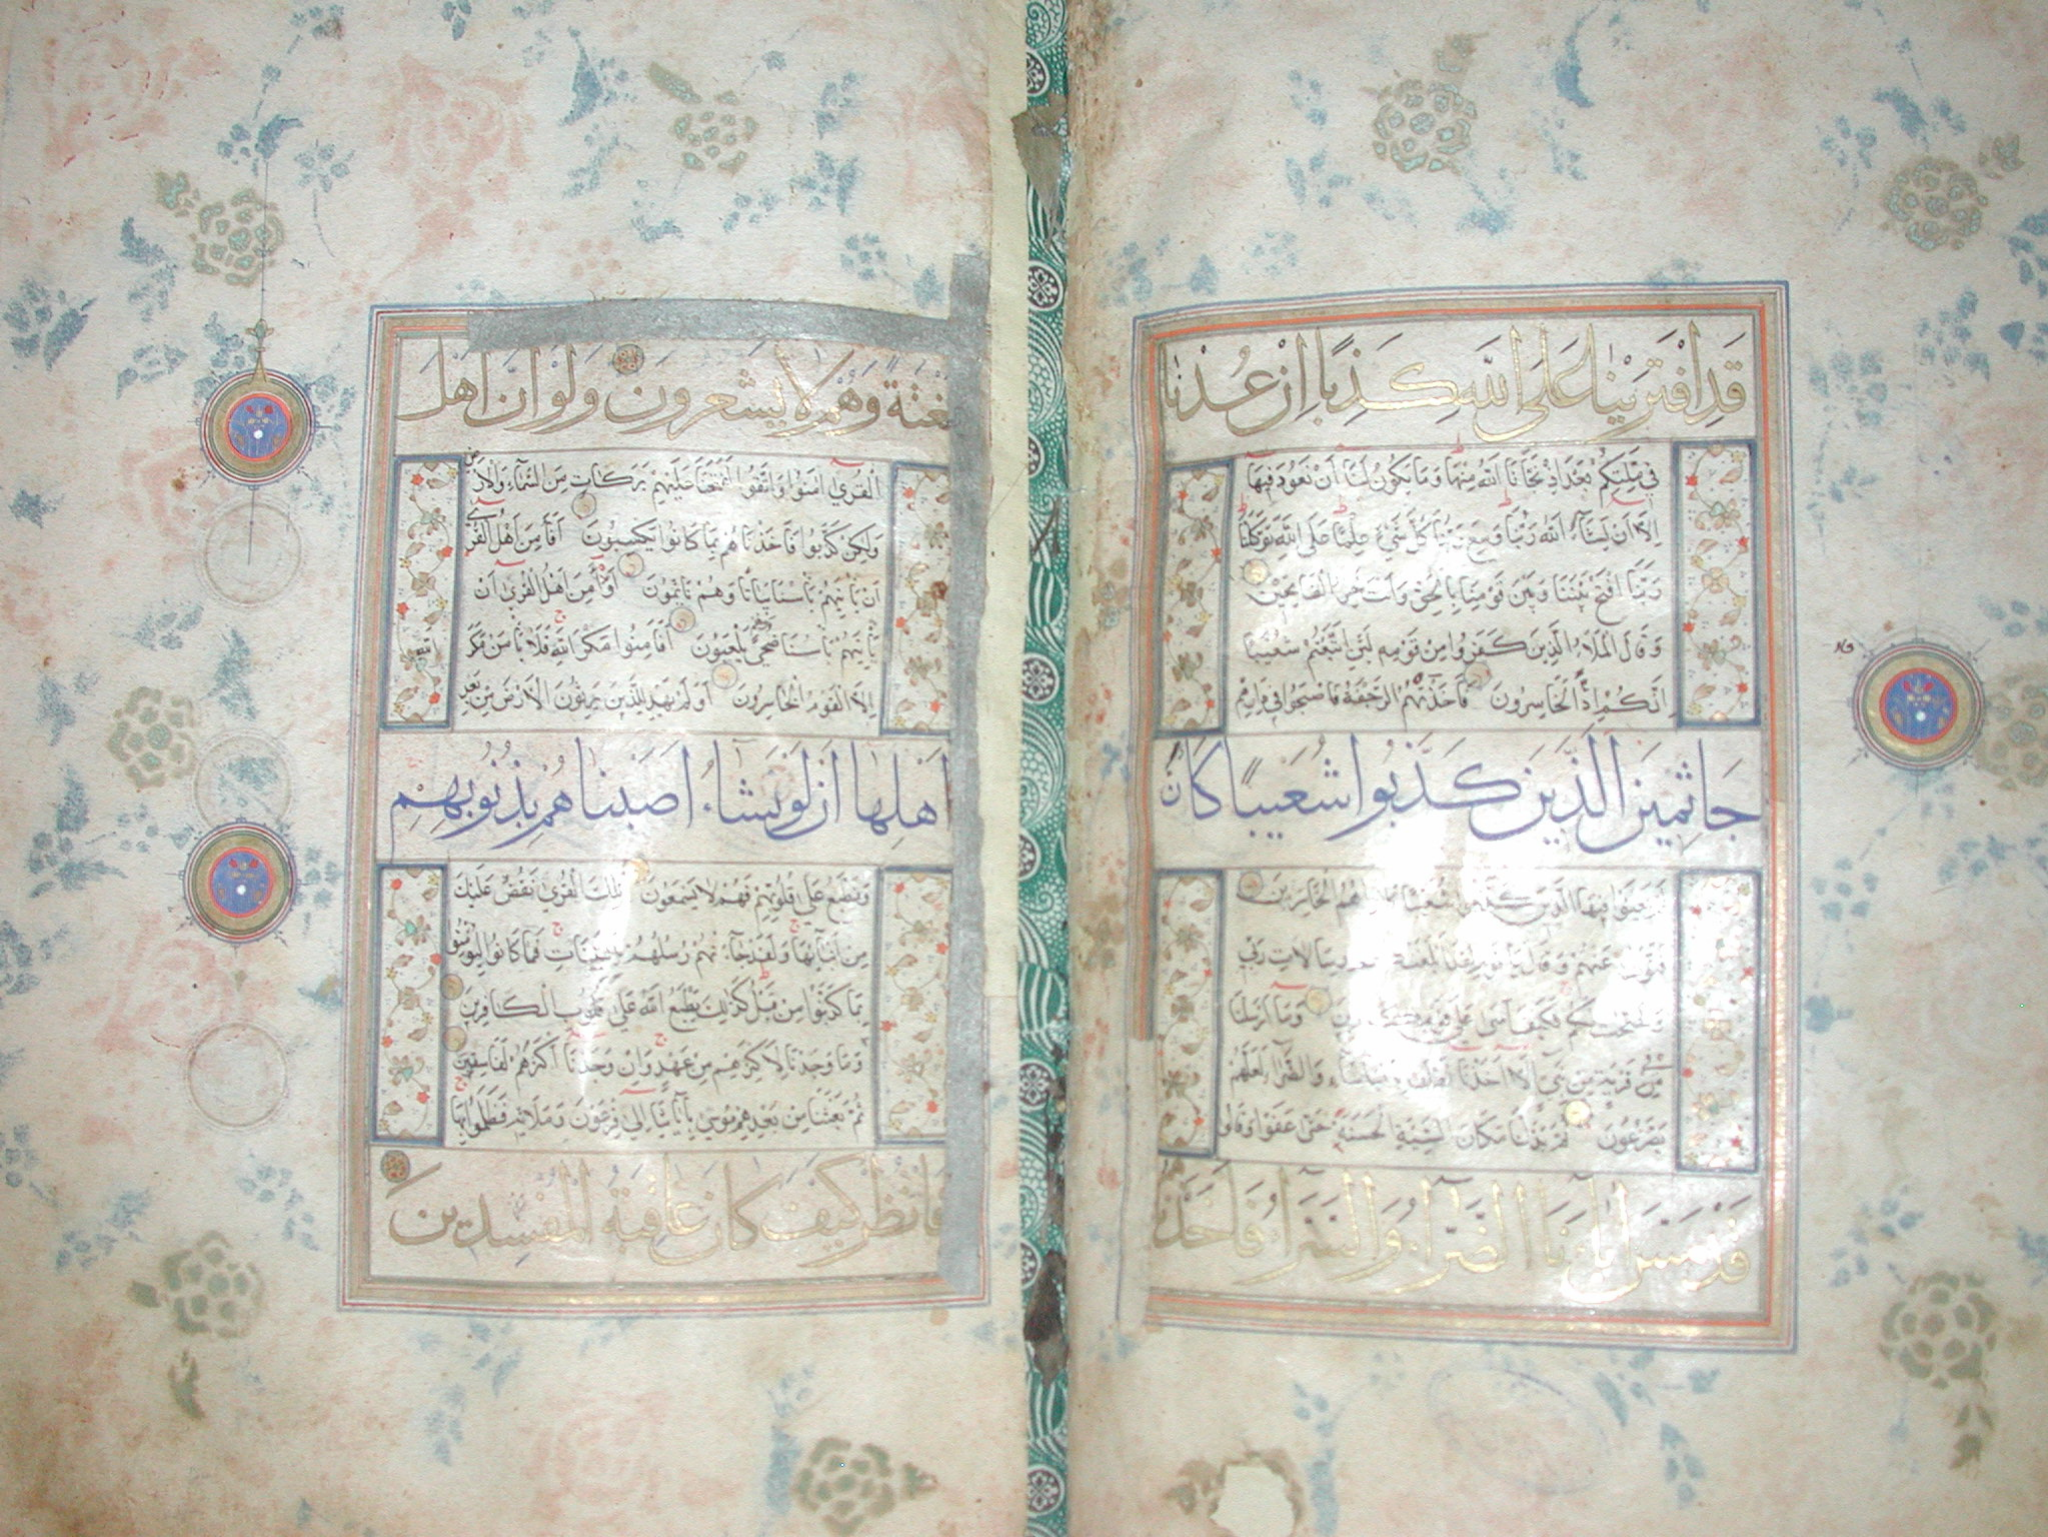 قَدِ افْتَرَيْنَا عَلَى اللّٰهِ كَذِبًا اِنْ عُدْنَا
فِي مِلَّتِكُمْ بَعْدَ اِذْ نَجَّانَا اللّٰهُ مِنْهَا وَمَا يَكُونُ لَنَا أَنْ نَعُودَ فِيهَا
اِلَّا اَنْ يَشَاءَ اللّٰهُ رَبُّنَا وَسِعَ رَبُّنَا كُلَّ شَيْءٍ عِلْمًا عَلَى اللّٰهِ تَوَكَّلْنَا
رَبَّنَا افْتَحْ بَيْنَنَا وَبَيْنَ قَوْمِنَا بِالْحَقِّ وَاَنْتَ خَيْرُ الْفَاتِحِينَ
وَقَالَ الْمَلَاءُ الَّذِينَ كَفَرُوا مِنْ قَوْمِهِ لَئِنِ اتَّبَعْتُمْ شُعَيْبًا
اِنَّكُمْ اِذًا لَخَاسِرُونَ فَاَخَذَتْهُمُ الرَّجْفَةُ فَاَصْبَحُوا فِي دَارِهِمْ
جَاثِمِينَ الَّذِينَ كَذَّبُوا شُعَيْبًا كَانْ
لَمْ يَغْنَوْا فِيهَا الَّذِينَ كَذَّبُوا شُعَيْبًا كَانُوا هُمُ الْخَاسِرِينَ
فَتَوَلّٰى عَنْهُمْ وَقَالَ يَا قَوْمِ لَقَدْ اَبْلَغْتُكُمْ رِسَالَاتِ رَبِّي
وَنَصَحْتُ لَكُمْ فَكَيْفَ اٰسٰى عَلٰى قَوْمٍ كَافِرِينَ وَمَا اَرْسَلْنَا
فِي قَرْيَةٍ مِنْ نَبِيٍّ اِلَّا اَخَذْنَا اَهْلَهَا بِالْبَأْسَاءِ وَالضَّرَّاءِ لَعَلَّهُمْ
يَضَّرَّعُونَ ثُمَّ بَدَّلْنَا مَكَانَ السَّيِّئَةِ الْحَسَنَةَ حَتّٰى عَفَوْا وَقَالُوا
قَدْ مَسَّ اٰبَاءَنَا الضَّرَّاءُ وَالسَّرَّاءُ فَاَخَذْنَا
بَغْتَةً وَهُمْ لَا يَشْعُرُونَ وَلَوْ اَنَّ اَهْلَ
الْقُرٰى اٰمَنُوا وَاتَّقَوْا لَفَتَحْنَا عَلَيْهِمْ بَرَكَاتٍ مِنَ السَّمَاءِ وَالْاَرْضِ
وَلٰكِنْ كَذَّبُوا فَاَخَذْنَاهُمْ بِمَا كَانُوا يَكْسِبُونَ اَفَاَمِنَ اَهْلُ الْقُرٰى
اَنْ يَاْتِيَهُمْ بَاْسُنَا بَيَاتًا وَهُمْ نَائِمُونَ اَوَاَمِنَ اَهْلُ الْقُرٰى اَنْ
يَاْتِيَهُمْ بَاْسُنَا ضُحًى وَهُمْ يَلْعَبُونَ اَفَاَمِنُوا مَكْرَ اللّٰهِ فَلَا يَاْمَنُ مَكْرَ اللّٰهِ
اِلَّا الْقَوْمُ الْخَاسِرُونَ اَوَلَمْ يَهْدِ لِلَّذِينَ يَرِثُونَ الْاَرْضَ مِنْ بَعْدِ
اَهْلِهَا اَنْ لَوْ نَشَاءُ اَصَبْنَاهُمْ بِذُنُوبِهِمْ
وَنَطْبَعُ عَلٰى قُلُوبِهِمْ فَهُمْ لَا يَسْمَعُونَ تِلْكَ الْقُرٰى نَقُصُّ عَلَيْكَ
مِنْ اَنْبَائِهَا وَلَقَدْ جَاءَتْهُمْ رُسُلُهُمْ بِالْبَيِّنَاتِ فَمَا كَانُوا لِيُؤْمِنُوا
بِمَا كَذَّبُوا مِنْ قَبْلُ كَذٰلِكَ يَطْبَعُ اللّٰهُ عَلٰى قُلُوبِ الْكَافِرِينَ
وَمَا وَجَدْنَا لِاَكْثَرِهِمْ مِنْ عَهْدٍ وَاِنْ وَجَدْنَا اَكْثَرَهُمْ لَفَاسِقِينَ
ثُمَّ بَعَثْنَا مِنْ بَعْدِهِمْ مُوسٰى بِاٰيَاتِنَا اِلٰى فِرْعَوْنَ وَمَلَائِهِ فَظَلَمُوا بِهَا
فَانْظُرْ كَيْفَ كَانَ عَاقِبَةُ الْمُفْسِدِينَ